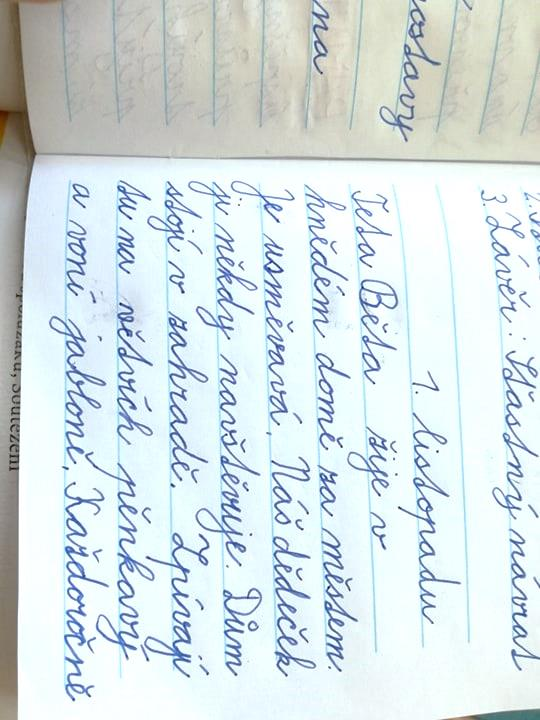 ostavy
na
3. Závěr: Šťastný návrat
1. listopadu
Teta Běta žije v
hnědém domě za městem.
Je usměvavá. Náš dědeček
ji někdy navštěvuje. Dům
stojí v zahradě. Zpívají
tu na větvích pěnkavy
a voní jabloně. Každoročně